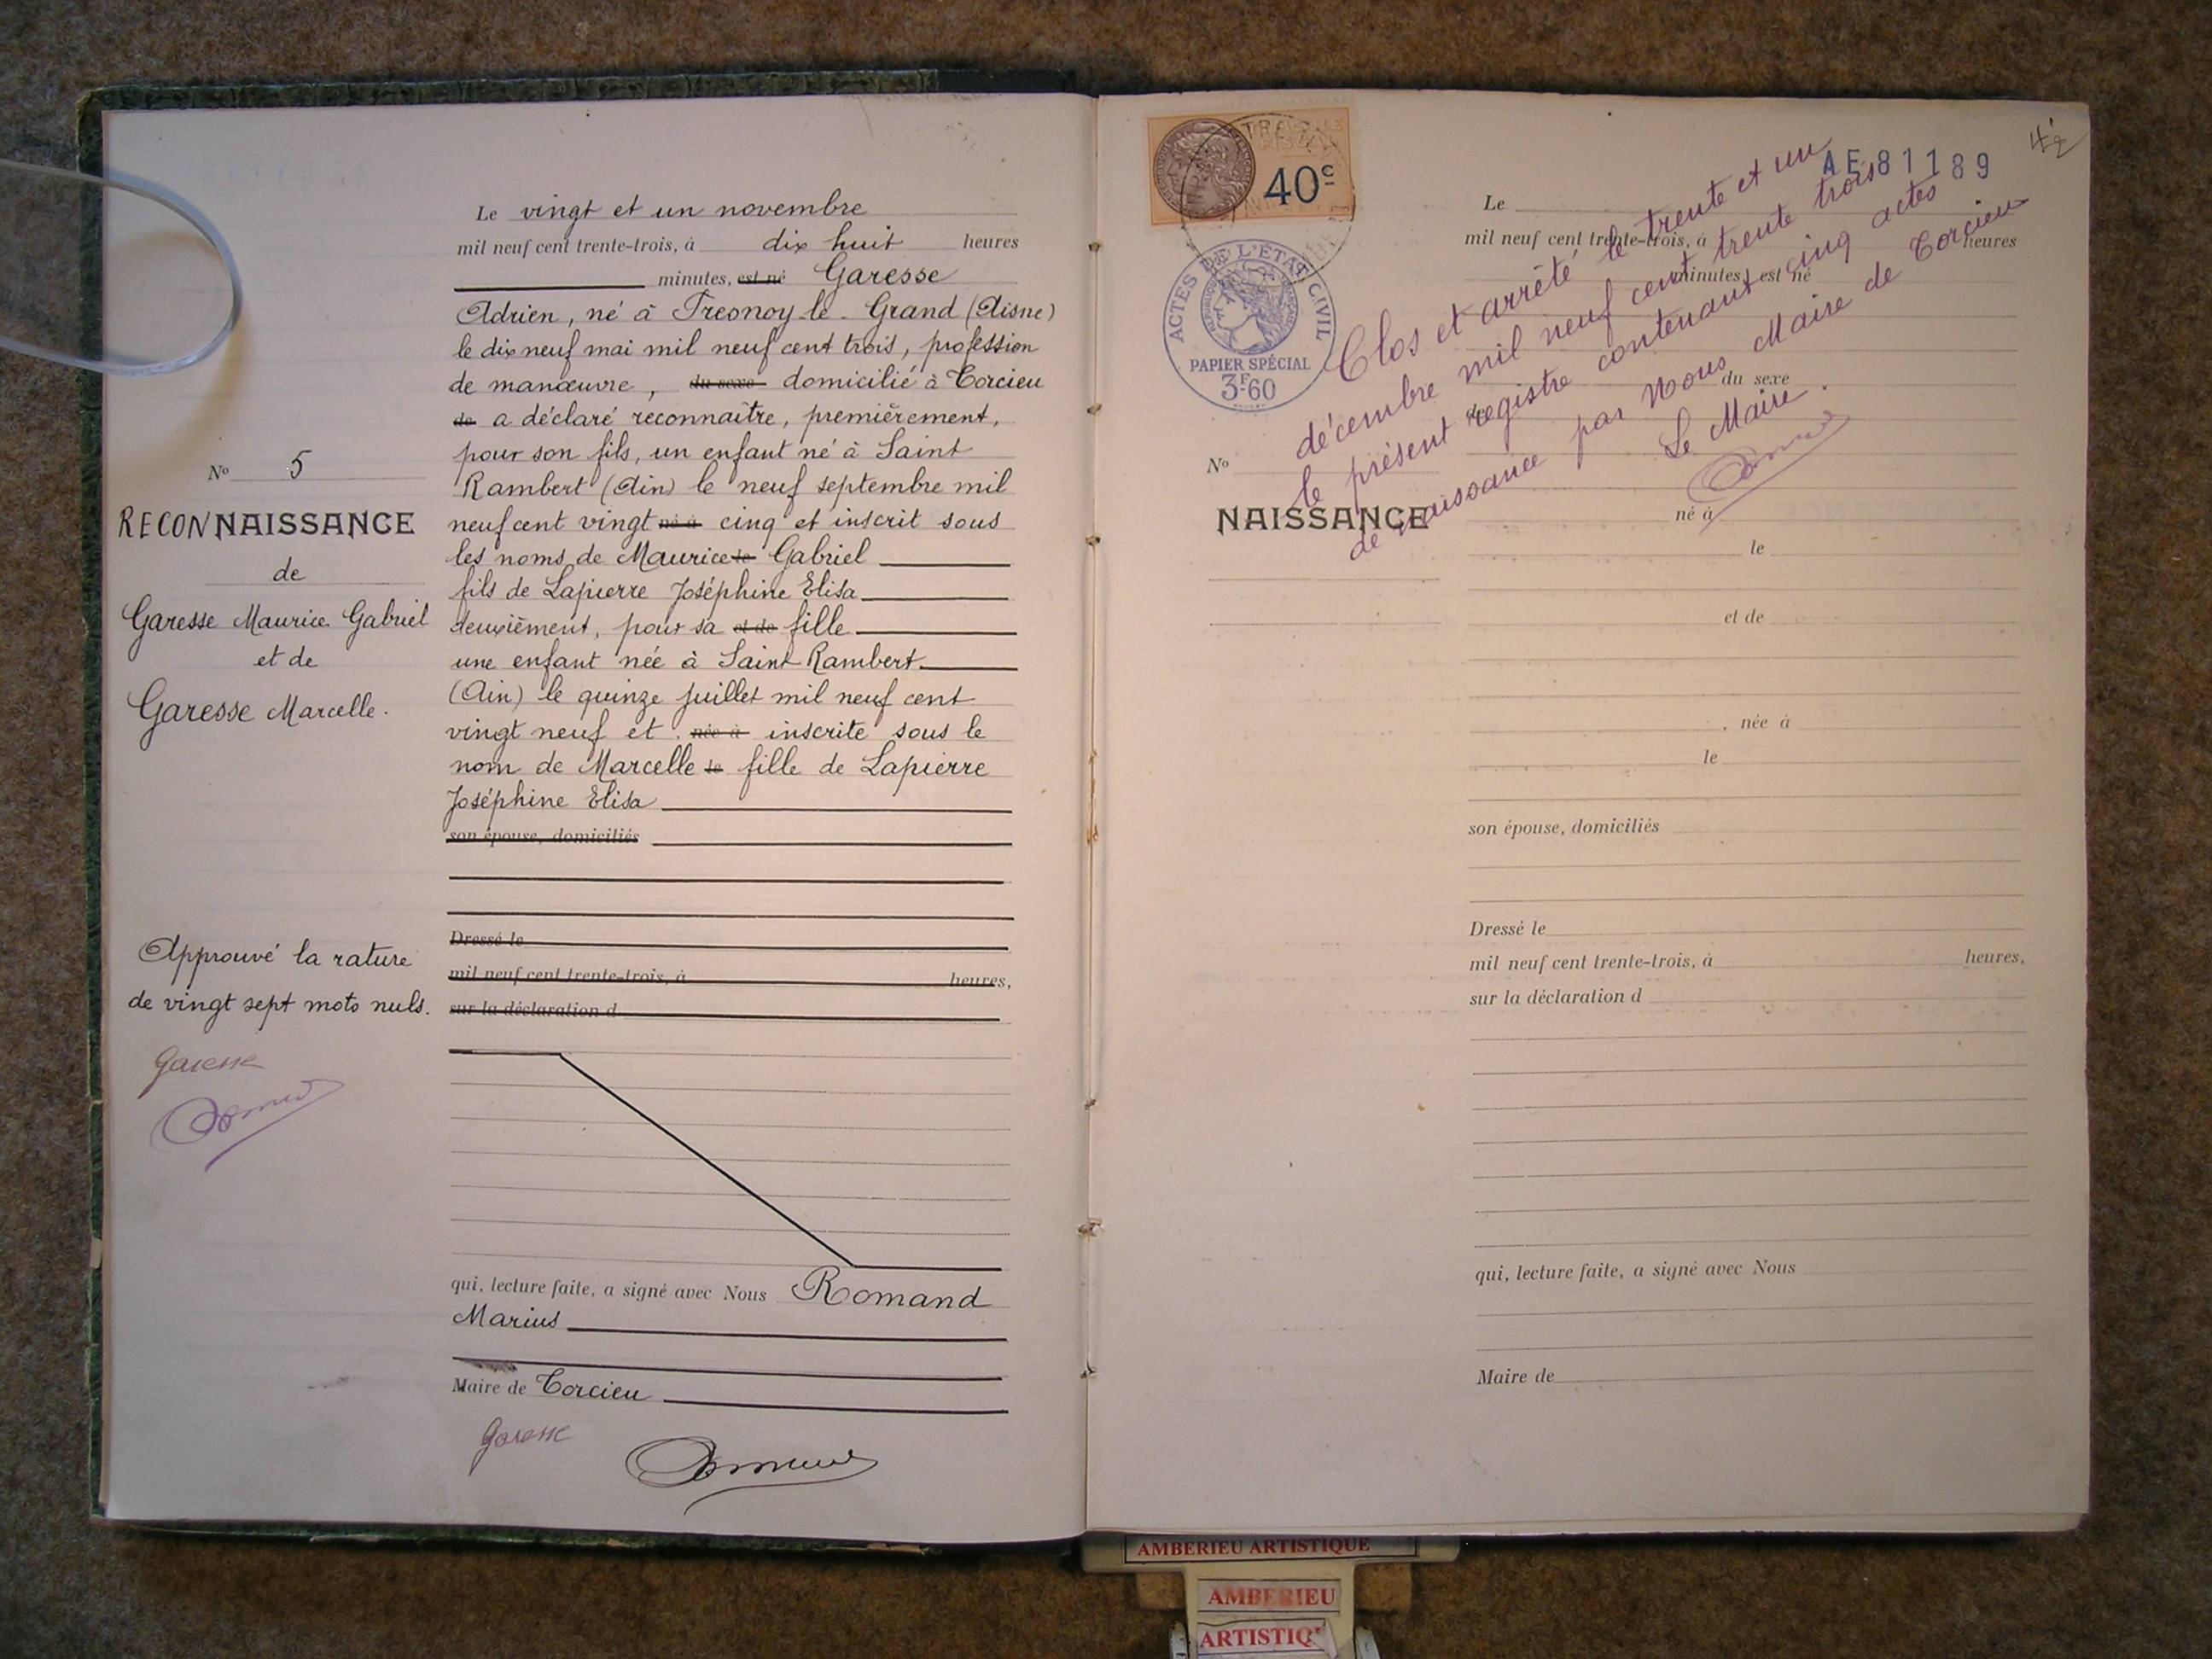 Le vingt et un novembre
mil neuf cent trente-trois, à dix huit heures
minutes, est né Garesse
Adrien, né à Fresnoy-le-Grand (Aisne)
le dix neuf mai mil neuf cent trois, profession
de manœuvre, du sexe domicilié à Torcieu
de a déclaré reconnaître, premièrement,
pour son fils, un enfant né à Saint
Rambert (Ain) le neuf septembre mil
neuf cent vingt né à cinq et inscrit sous
les noms de Maurice le Gabriel
fils de Lapierre Joséphine Elisa
deuxièment, pour sa et de fille
une enfant née à Saint Rambert
(Ain) le quinze juillet mil neuf cent
vingt neuf et née à inscrite sous le
nom de Marcelle le fille de Lapierre
Joséphine Elisa
son épouse, domiciliés
Dressé le
mil neuf cent trente-trois, à heures,
sur la déclaration d
qui, lecture faite, a signé avec Nous Romand
Marius
Maire de Torcieu
Garesse
Nº 5
RECONNAISSANCE
de
Garesse Maurice Gabriel
et de
Garesse Marcelle.
Approuvé la rature
de vingt sept mots nuls.
Garesse
TIMBRE
FISCAL
40c
ACTES DE L'ÉTAT CIVIL
RÉPUBLIQUE FRANÇAISE
PAPIER SPÉCIAL
3F60
AE81189
42
Clos et arrêté le trente et un
décembre mil neuf cent trente trois
le présent registre contenant cinq actes
de naissance par Nous Maire de Torcieu
Le Maire.
Le
mil neuf cent trente-trois, à heures
minutes, est né
du sexe
de
Nº
NAISSANCE
né à
le
et de
, née à
le
son épouse, domiciliés
Dressé le
mil neuf cent trente-trois, à heures,
sur la déclaration d
qui, lecture faite, a signé avec Nous
Maire de
AMBERIEU ARTISTIQUE
AMBERIEU
ARTISTIQ